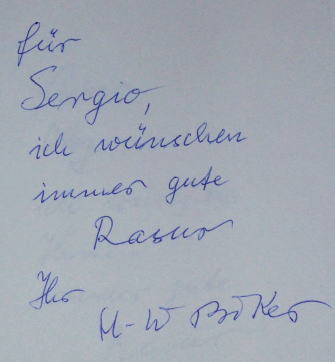 für
Sergio,
ich wünschen
immer gute
Rasur
Ihr
H-W Böker